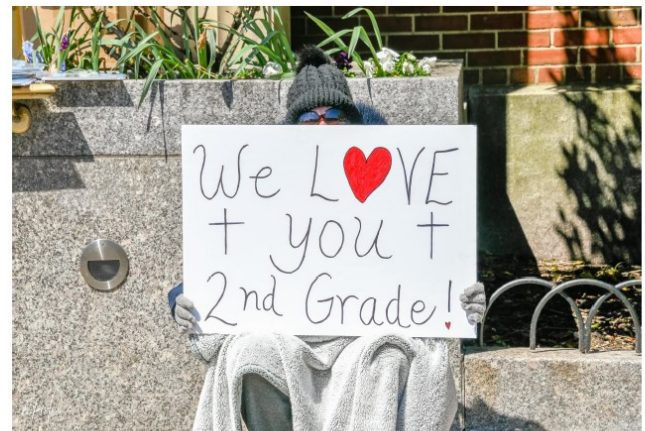 We L❤VE
† you †
2nd Grade!